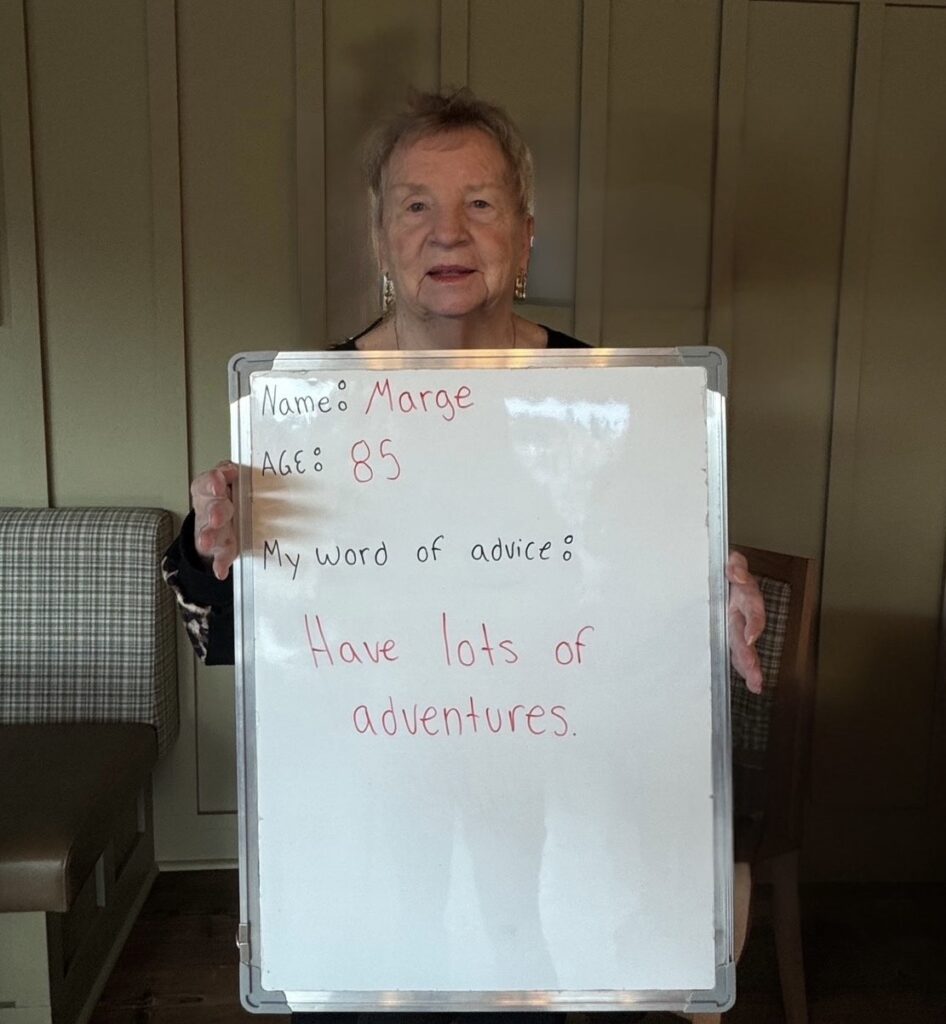 Name: Marge
AGE: 85
My word of advice:
Have lots of
adventures.